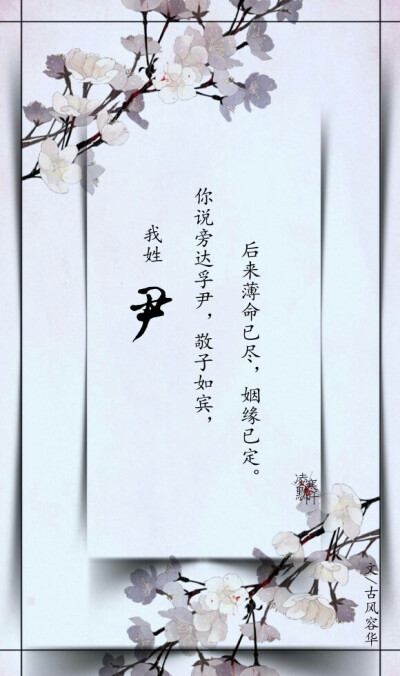 我姓
尹
你说旁达孚尹，敬子如宾，
后来薄命已尽，姻缘已定。
文/古风容华